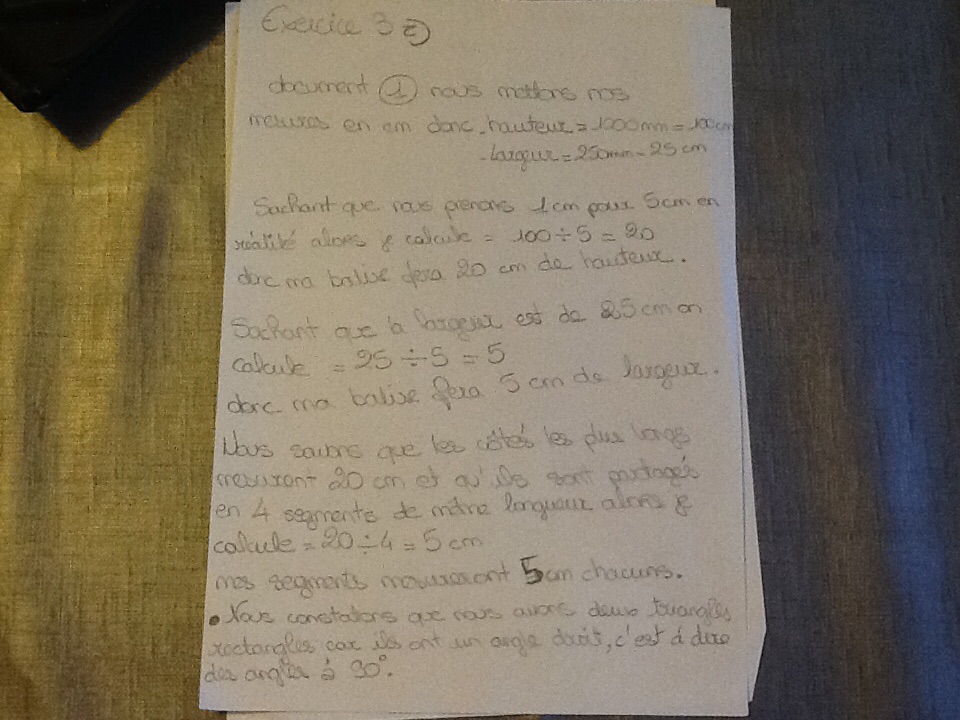 Exercice 3 2)
document 1 nous mettons nos
mesures en cm donc - hauteur = 1000mm = 100cm
- largeur = 250mm = 25 cm
Sachant que nous prenons 1cm pour 5cm en
réalité alors je calcule = 100 ÷ 5 = 20
donc ma balise fera 20 cm de hauteur.
Sachant que la largeur est de 25cm on
calcule = 25 ÷ 5 = 5
donc ma balise fera 5 cm de largeur.
Nous savons que les côtés les plus longs
mesurent 20 cm et qu'ils sont partagés
en 4 segments de même longueur alors je
calcule = 20 ÷ 4 = 5 cm
mes segments mesureront 5cm chacuns.
• Nous constatons que nous avons deux triangles
rectangles car ils ont un angle droit, c'est à dire
des angles à 90°.